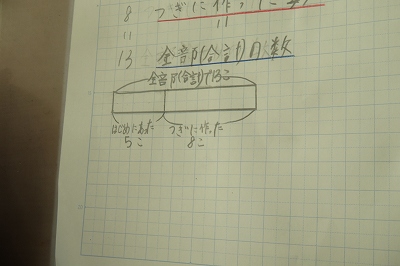 8 つぎに作った数
11 11
13 全部(合計)の数
全部(合計)で13こ
はじめにあった つぎに作った
5こ 8こ